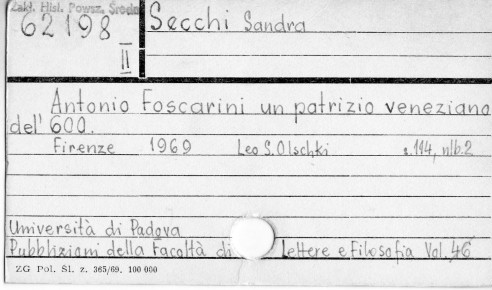 Zakł. Hist. Powsz. Średn
62198
II
Secchi Sandra
Antonio Foscarini un patrizio veneziano
del' 600.
Firenze 1969 Leo S. Olschki s. 114, nlb. 2
Università di Padova
Pubblizioni della Facoltà di Lettere e Filosofia Vol. 46
ZG Pol. Śl. z. 365/69. 100 000